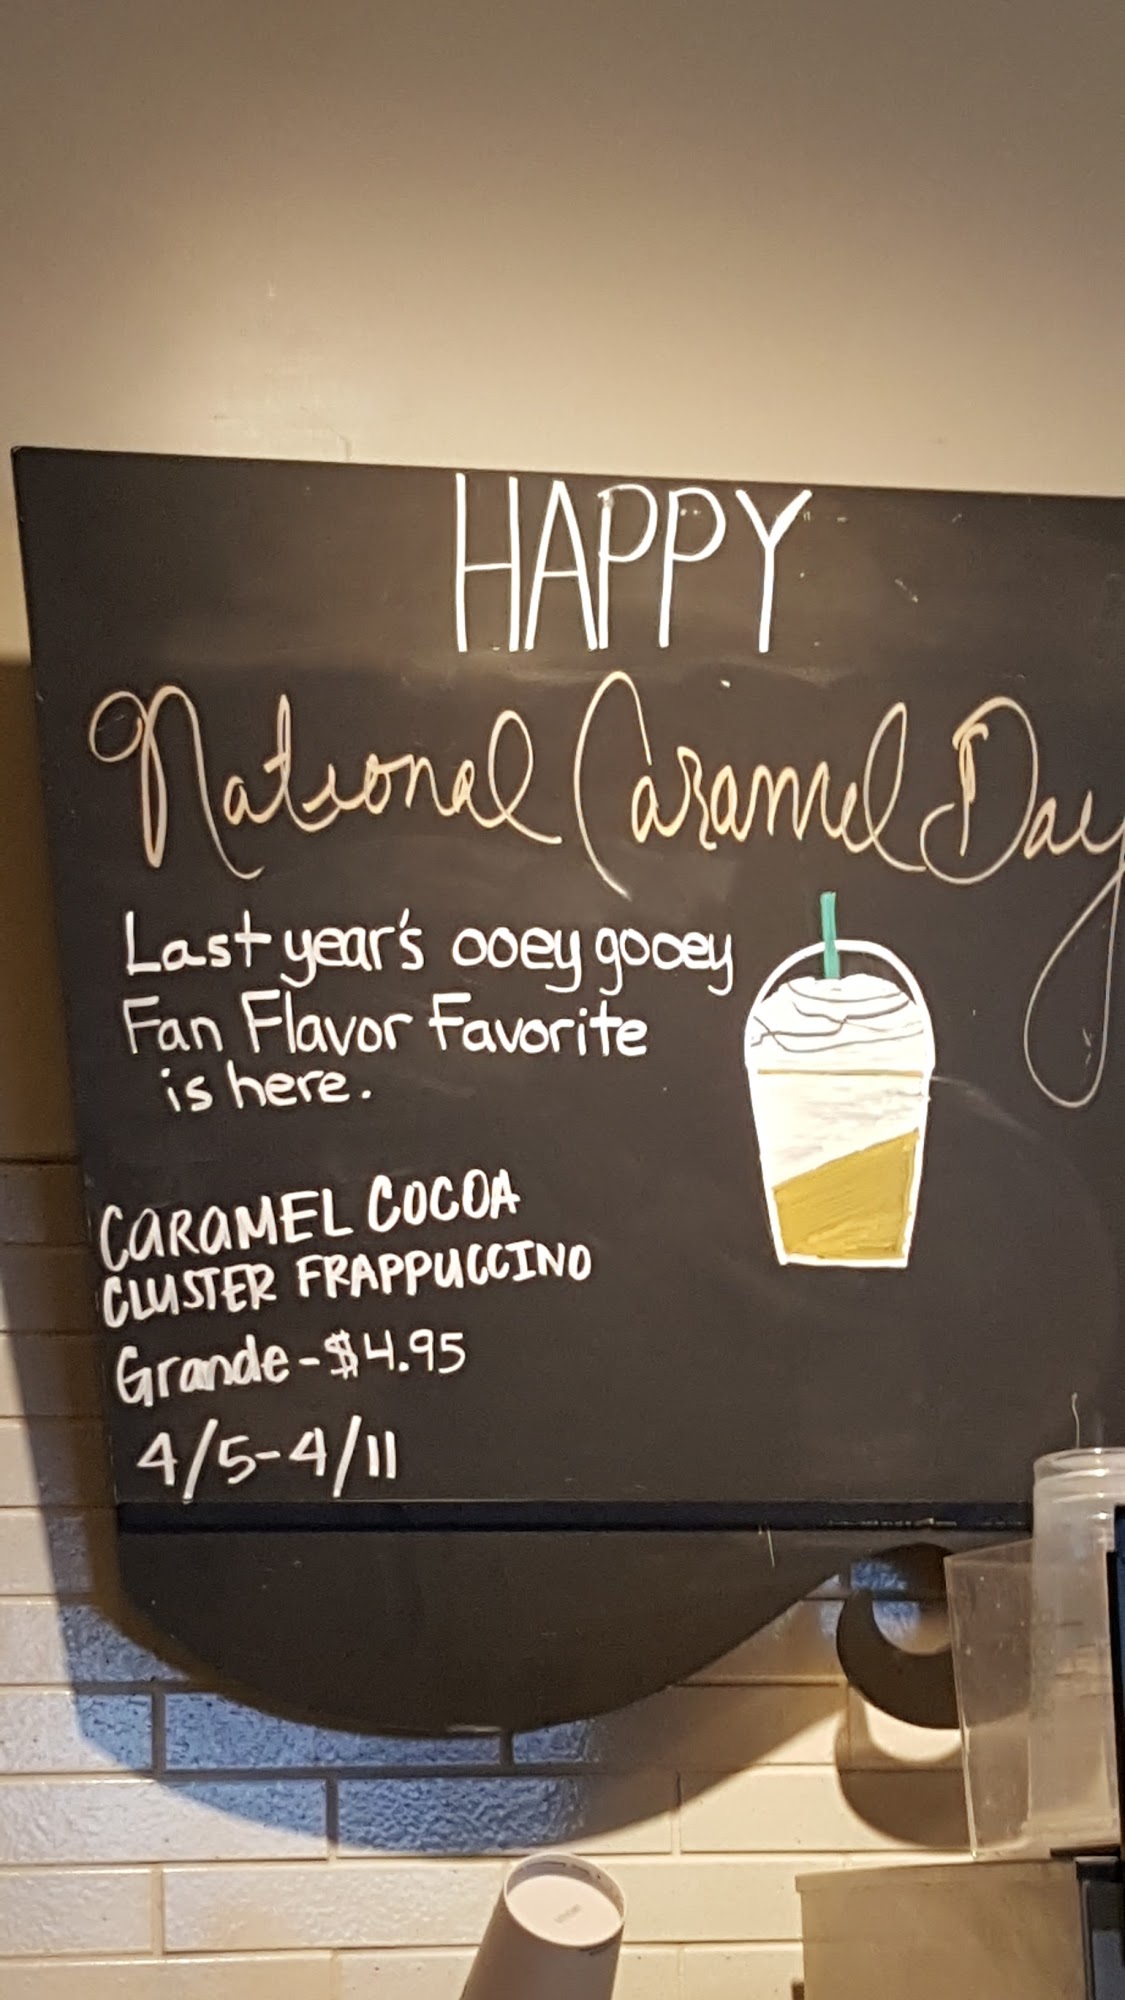 HAPPY
National Caramel Day
Last year's ooey gooey
Fan Flavor Favorite
is here.
CARAMEL COCOA
CLUSTER FRAPPUCCINO
Grande-$4.95
4/5-4/11